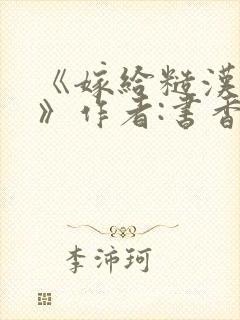 《嫁给糙漢
》作者:書香
李沛珂